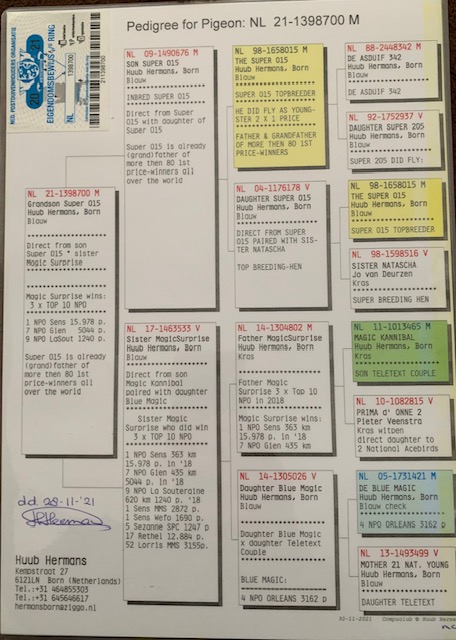 Pedigree for Pigeon: NL 21-1398700 M
NED. POSTDUIVENHOUDERS ORGANISATIE
EIGENDOMSBEWIJS RING
NL
1398700
21-1398700
NL 21-1398700 M
Grandson Super 015
Huub Hermans, Born
Blauw
Direct from son
Super 015 * sister
Magic Surprise
Magic Surprise wins:
3 x TOP 10 NPO
1 NPO Sens 15.978 p.
7 NPO Gien 5044 p.
9 NPO LaSout 1240 p.
Super 015 is already
(grand)father of
more then 80 1st
price-winners all
over the world
NL 09-1490676 M
SON SUPER 015
Huub Hermans, Born
Blauw
INBRED SUPER 015
Direct from Super
015 with daughter of
Super 015
Super 015 is already
(grand)father of
more then 80 1st
price-winners all
over the world
NL 17-1463533 V
Sister MagicSurprise
Huub Hermans, Born
Blauw
Direct from son
Magic Kannibal
paired with daughter
Blue Magic
Sister Magic
Surprise who did win
3 x TOP 10 NPO
1 NPO Sens 363 km
15.978 p. in '18
7 NPO Gien 435 km
5044 p. in '18
9 NPO La Souteraine
620 km 1240 p. '18
1 Sens MMS 2872 p.
1 Sens Wefo 1690 p.
5 Sezanne SFC 1247 p
17 Rethel 12.884 p.
52 Lorris MMS 3155p.
NL 98-1658015 M
THE SUPER 015
Huub Hermans, Born
Blauw
SUPER 015 TOPBREEDER
HE DID FLY AS YOUNG-
STER 2 X 1 PRICE
FATHER & GRANDFATHER
OF MORE THEN 80 1ST
PRICE-WINNERS
NL 04-1176178 V
DAUGHTER SUPER 015
Huub Hermans, Born
Blauw
DIRECT FROM SUPER
015 PAIRED WITH SIS-
TER NATASCHA
TOP BREEDING-HEN
NL 14-1304802 M
Father MagicSurprise
Huub Hermans, Born
Kras
Father Magic
Surprise 3 x Top 10
NPO in 2018
Magic Surprise wins:
1 NPO Sens 363 km
15.978 p. in '18
7 NPO Gien 435 km
NL 14-1305026 V
Daughter Blue Magic
Huub Hermans, Born
Blauw
Daughter Blue Magic
x daughter Teletext
Couple
BLUE MAGIC:
4 NPO ORLEANS 3162 p
NL 88-2448342 M
DE ASDUIF 342
Huub Hermans, Born
Blauw
DE ASDUIF 342
NL 92-1752937 V
DAUGHTER SUPER 205
Huub Hermans, Born
Blauw
SUPER 205 DID FLY:
NL 98-1658015 M
THE SUPER 015
Huub Hermans, Born
Blauw
SUPER 015 TOPBREEDER
NL 98-1598516 V
SISTER NATASCHA
Jo van Deurzen
Kras
SUPER BREEDING HEN
NL 11-1013465 M
MAGIC KANNIBAL
Huub Hermans, Born
Kras
SON TELETEXT COUPLE
NL 10-1082815 V
PRIMA d' ONNE 2
Pieter Veenstra
Kras witpen
direct daughter to
2 National Acebirds
NL 05-1731421 M
DE BLUE MAGIC
Huub Hermans, Born
Blauw check
4 NPO ORLEANS 3162 p
NL 13-1493499 V
MOTHER 21 NAT. YOUNG
Huub Hermans, Born
Blauw
DAUGHTER TELETEXT
d.d. 28-11-'21
Huub Hermans
Kempstraat 27
6121LN Born (Netherlands)
Tel.:+31 464855303
Tel.:+31 645646617
hermansborn@ziggo.nl
30-11-2021 Compuclub © Huub Hermans